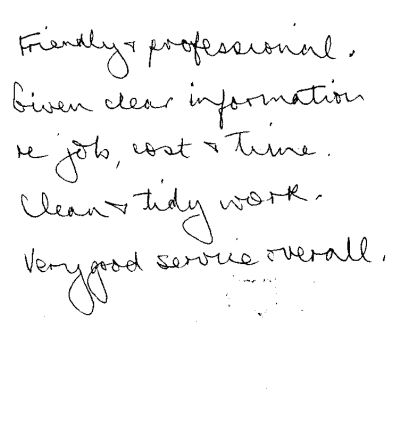 Friendly & professional.
Given clear information
re job, cost & time.
Clean & tidy work.
Very good service overall.